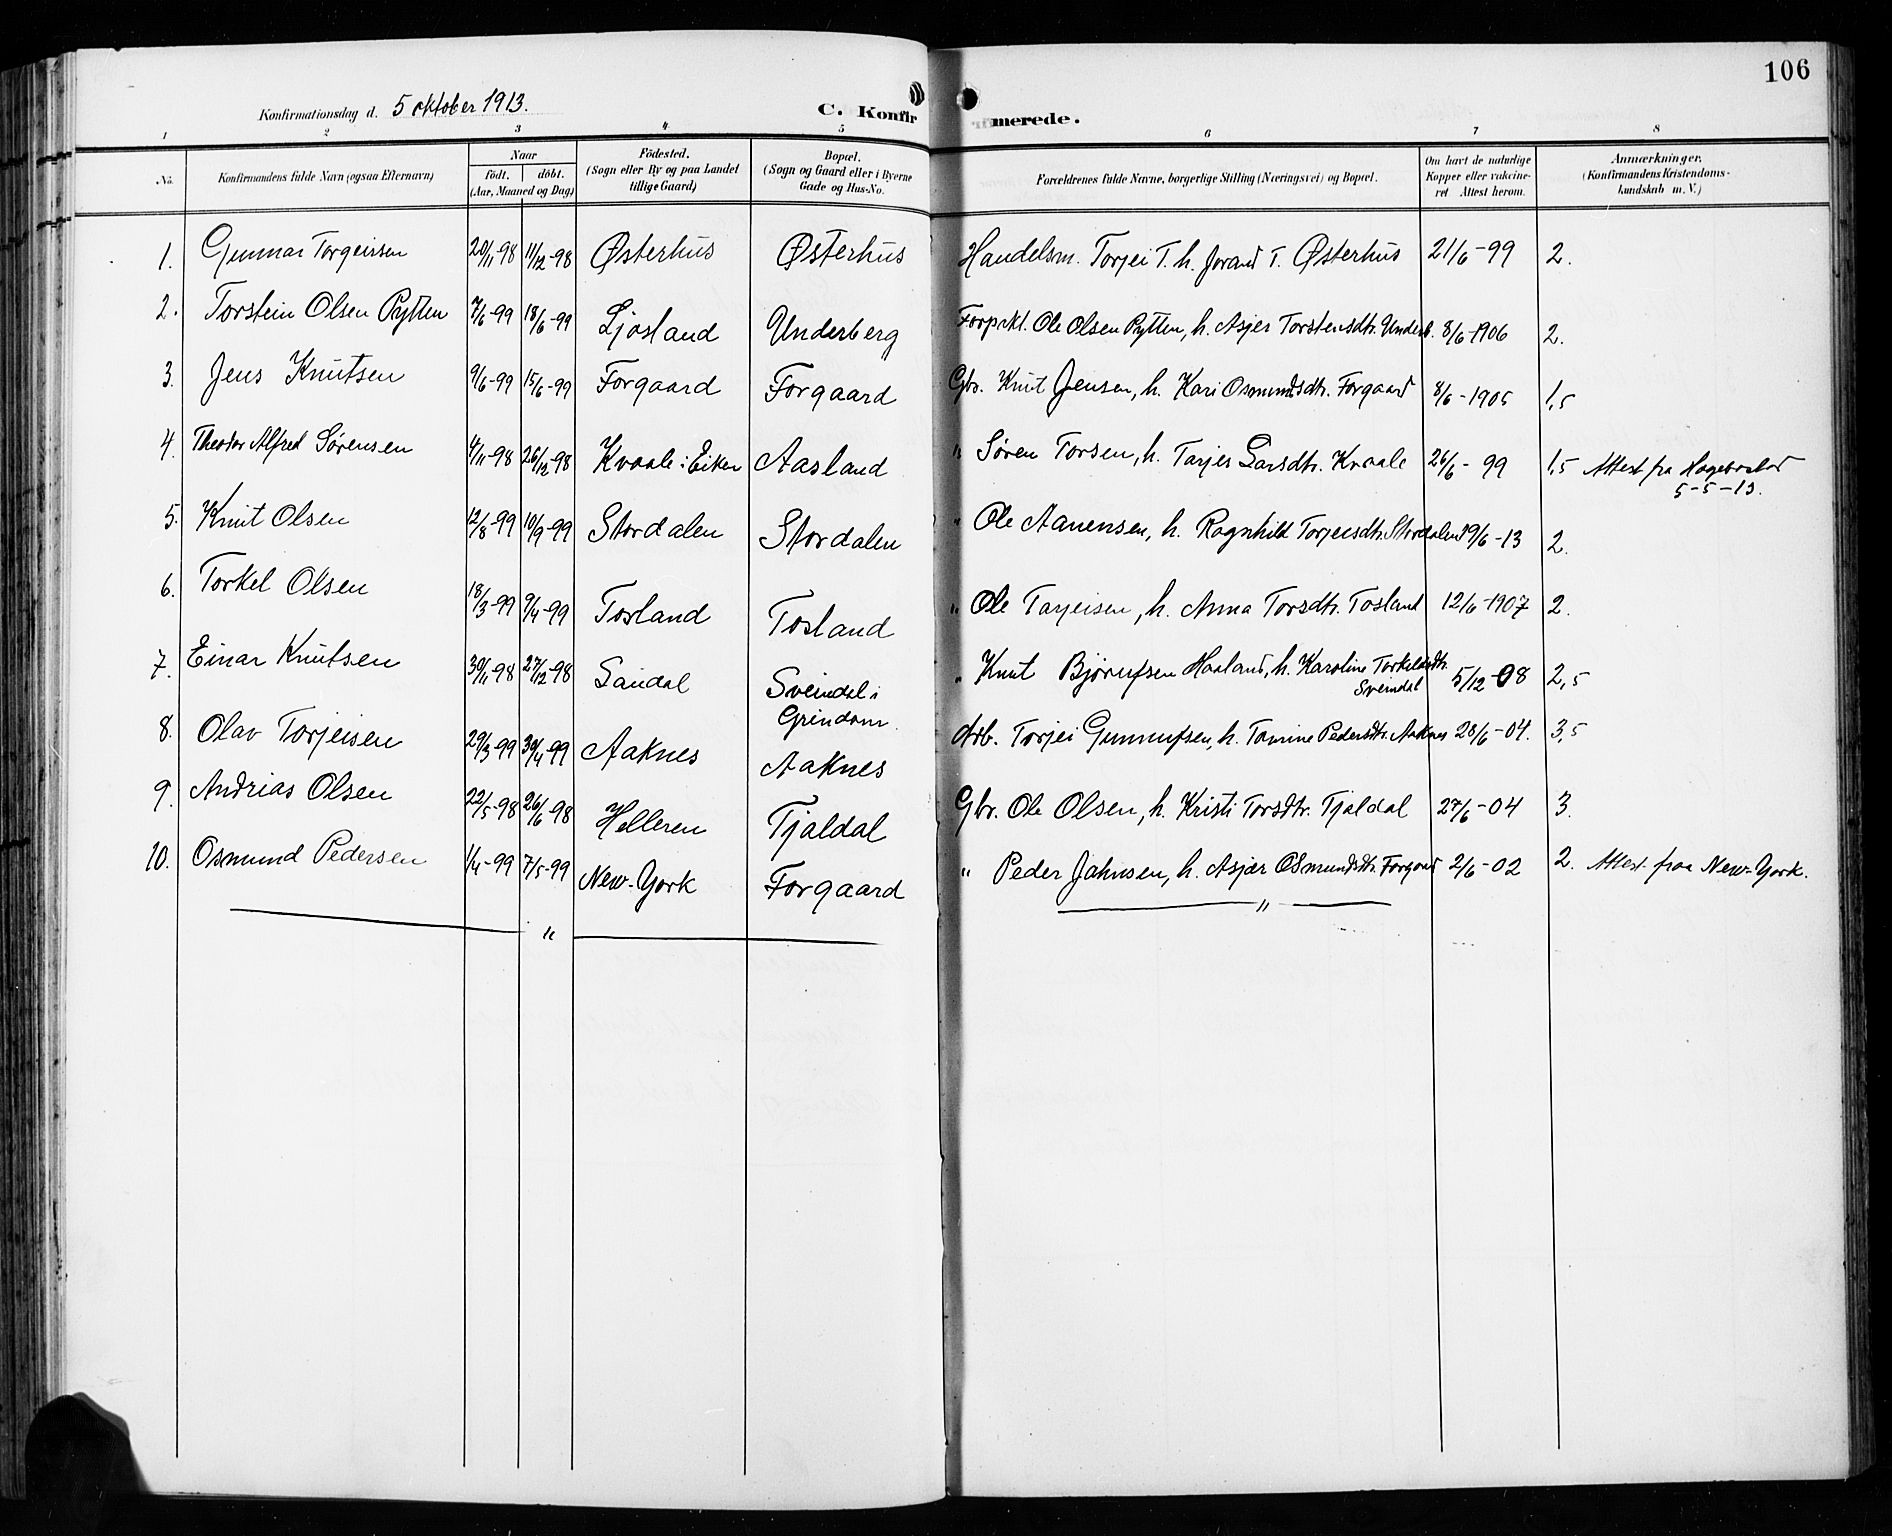 106
Konfirmationsdag d. 5 oktober 1913.
C. Konfirmerede.
1 2 3 4 5 6 7 8
No. Konfirmandens fulde Navn (ogsaa Efternavn) Naar födt. döbt. (Aar, Maaned og Dag) Födested. (Sogn eller By og paa Landet tillige Gaard) Bopæl. (Sogn og Gaard eller i Byerne Gade og Hus-No. Forældrenes fulde Navne, borgerlige Stilling (Næringsvei) og Bopæl. Om havt de naturlige Kopper eller vakcineret Attest herom. Anmærkninger. (Konfirmandens Kristendomskundskab m. V.)
1. Gunnar Torgeirsen 20/11-98 11/12-98 Østerhus Østerhus Handelsm. Torjei T. h. Jorand T. Østerhus 21/6-99 2.
2. Torstein Olsen Rytten 7/6-99 18/6-99 Ljosland Underberg Forpakt. Ole Olsen Rytten, h. Asjer Torstensdtr. Underb. 8/6-1906 2.
3. Jens Knutsen 9/6-99 15/6-99 Forgaard Forgaard Gbr. Knut Jensen, h. Kari Osmundsdtr. Forgaard 8/6-1905 1,5
4. Theodor Alfred Sørensen 4/11-98 26/12-98 Kvaale i Eiken Aasland " Søren Torsen, h. Tarjer Larsdtr. Kvaale 26/6-99 1,5 Attest fra Hægebostad
5-5-13.
5. Knut Olsen 12/8-99 10/9-99 Stordalen Stordalen " Ole Aanensen, h. Ragnhild Torjeisdtr. Stordalen 19/6-13 2.
6. Torkel Olsen 18/3-99 9/4-99 Tosland Tosland " Ole Tarjeisen, h. Anna Torsdtr. Tosland 12/6-1907 2.
7. Einar Knutsen 30/11-98 27/12-98 Sandal Sveindal i " Knut Bjørnufsen Haaland, h. Karoline Torkelsdtr. 5/12-08 2,5
Grindom. Sveindal
8. Olav Torjeisen 29/3-99 30/4-99 Aaknes Aaknes Arb. Torjei Gunnufsen, h. Tomine Pedersdtr. Aaknes 28/6-04. 3,5
9. Andrias Olsen 22/5-98 26/6-98 Helleren Tjaldal Gbr. Ole Olsen, h. Kristi Torsdtr. Tjaldal 27/6-04 3.
10. Osmund Pedersen 1/4-99 7/5-99 New-York Forgaard " Peder Jahnsen, h. Asjær Osmundsdtr. Forgaard 2/6-02 2. Attest fraa New-York.
" "